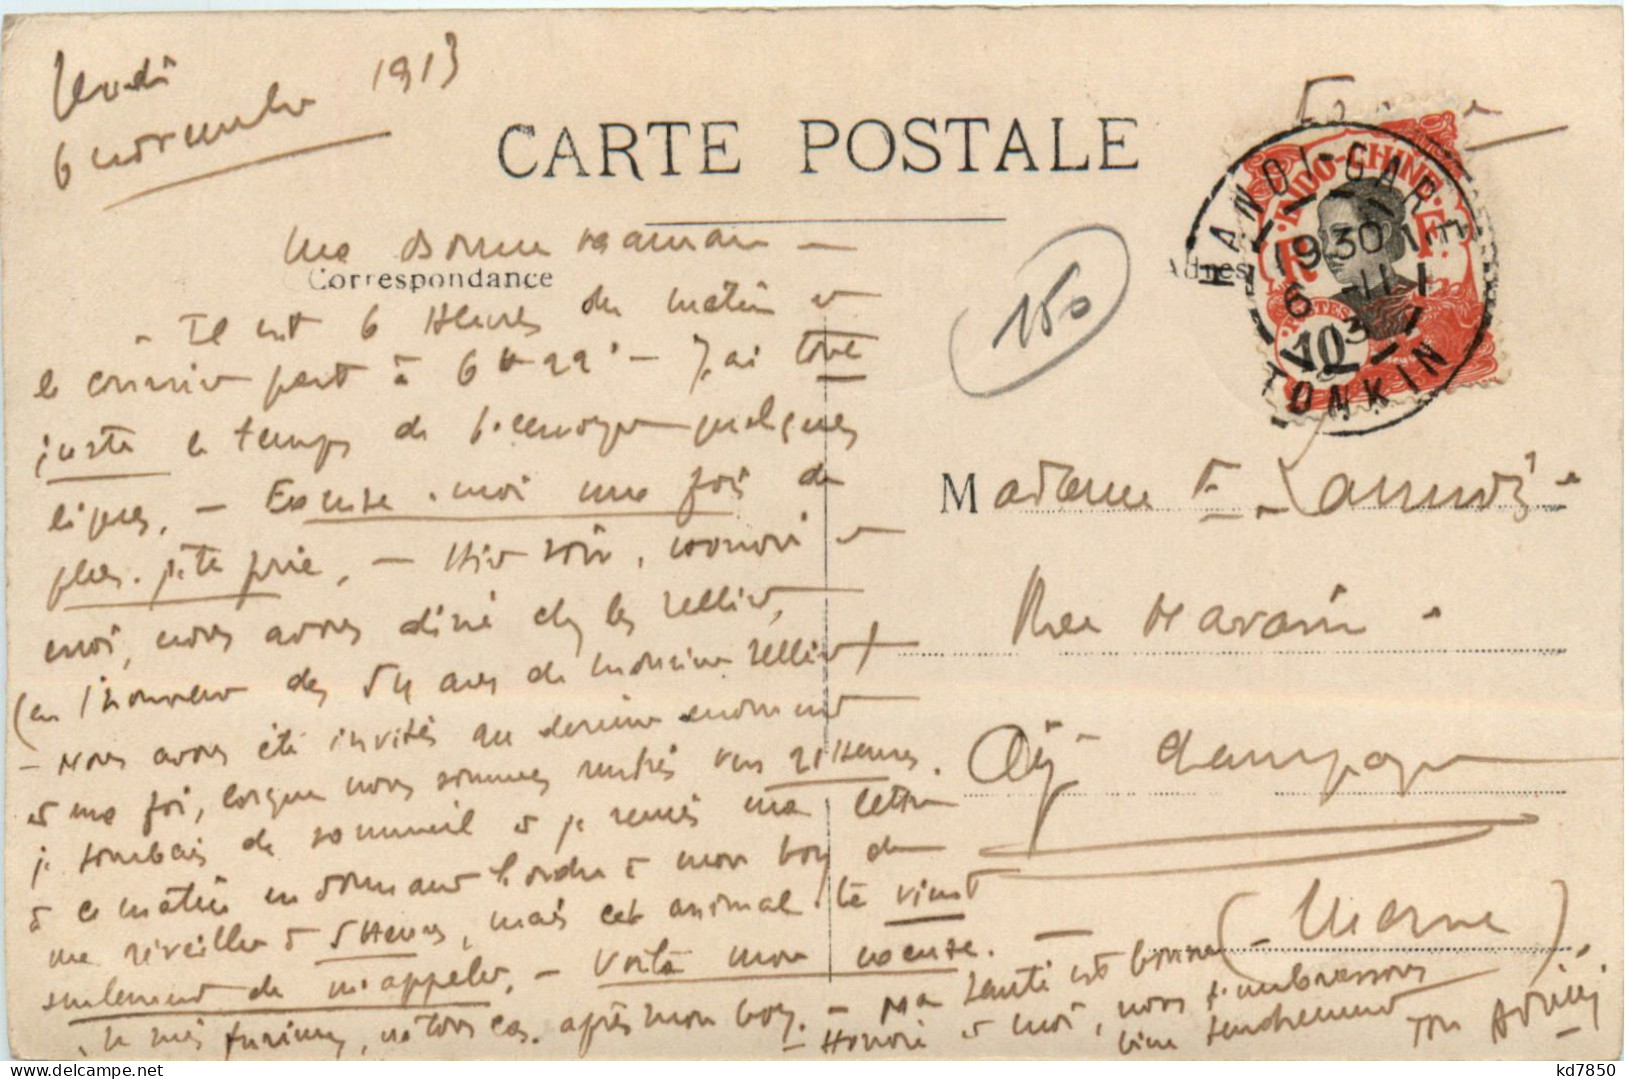 Jeudi
6 novembre 1913
CARTE POSTALE
Ma Bonne Maman —
Correspondance
- Il est 6 Heures du matin et
le courrier part à 6 H 22' — J'ai tout
juste le temps de t'envoyer quelques
lignes, — Excuse-moi une fois de
plus, je te prie, — Hier soir, Honoré et
moi, nous avons diné chez les Tellier,
(en l'honneur des 54 ans de Monsieur Tellier)
- Nous avons été invités au dernier moment
et ma foi, lorsque nous sommes rentrés vers 22 Heures,
je tombais de sommeil et je remis ma lettre
à ce matin en donnant l'ordre à mon boy de
me réveiller à 5 Heures, mais cet animal-là vient
seulement de m'appeler, — Voilà mon excuse. —
Je suis furieux, en tous cas, après mon boy. — Ma santé est bonne
— Honoré et moi, nous t'embrassons
bien tendrement
Ton
France
150
Adresse
HANOI-GARE
19 30
6 -11
13
TONKIN
INDO-CHINE
POSTES
10
Madame E. Lanudz
Rue
Aÿ Champagne
(Marne),
kd7850